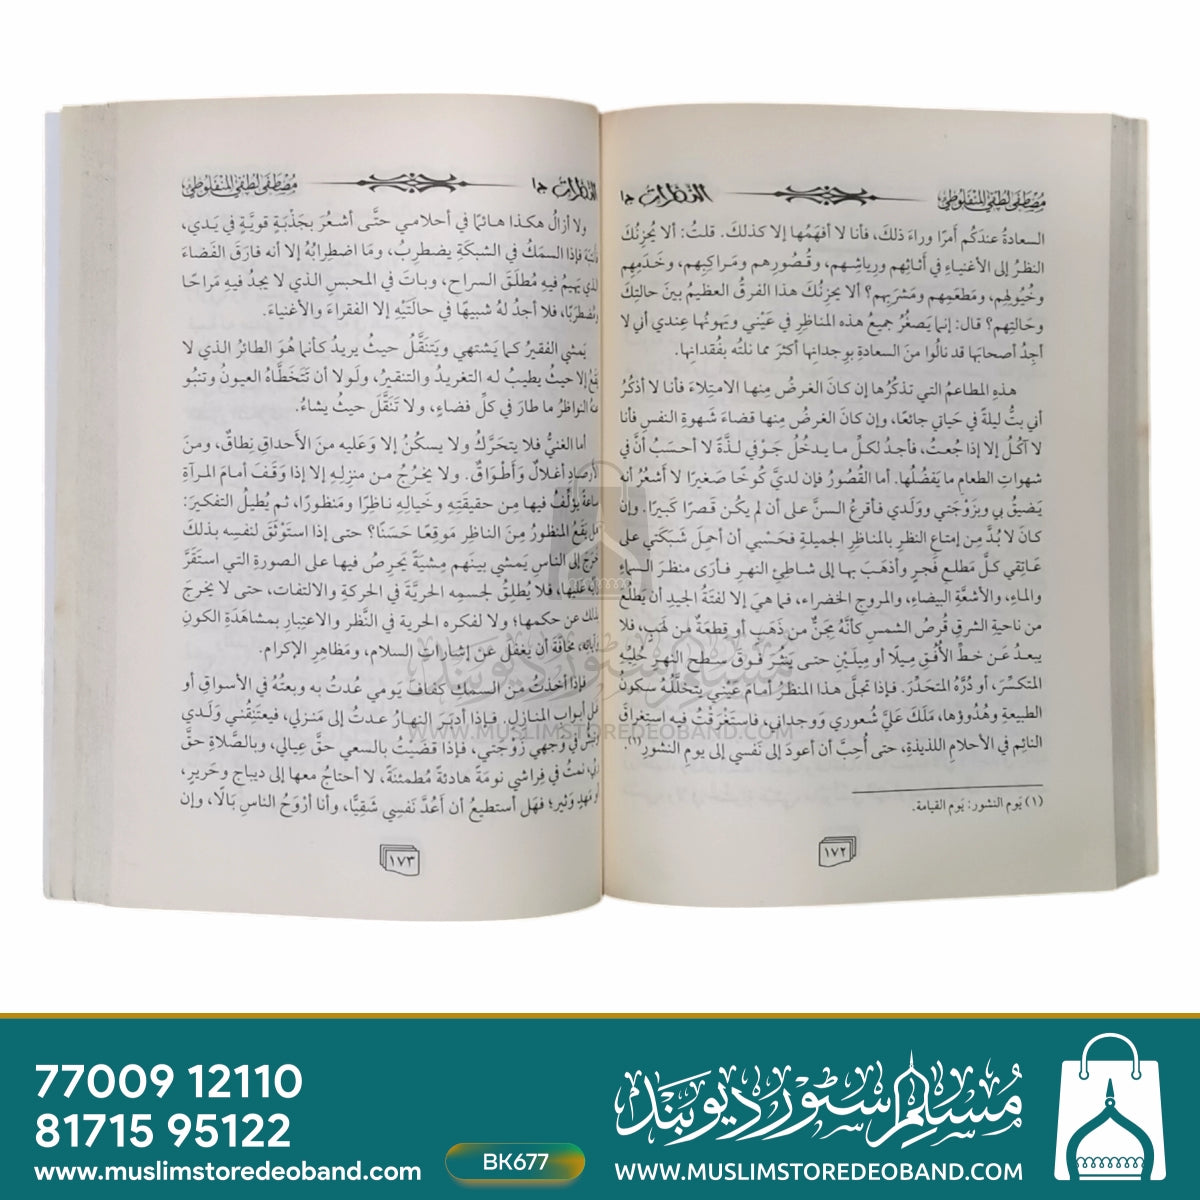 مصطفى لطفي المنفلوطي
النظرات جـ١
السعادةُ عندَكُم أَمرًا وراءَ ذلكَ، فأنا لا أفهَمُها إلا كذلكَ. قلتُ: ألا يُحزِنُكَ
النظرُ إلى الأغنياءِ في أثاثِهم ورِياشِهم، وقُصُورِهم ومَراكِبِهم، وخَدَمِهِم
وخُيُولهِم، ومَطعَمِهم ومَشرَبِهم؟ ألا يحزِنُكَ هذا الفرقُ العظيمُ بينَ حالتِكَ
وحَالتِهم؟ قال: إنما يَصغُرُ جميعُ هذه المناظرِ في عَيْني ويَهونُها عِندي أني لا
أجِدُ أصحابَها قد نالُوا منَ السعادةِ بوِجدانِها أكثرَ مما نلتُه بفُقدانِها.
هذهِ المطاعمُ التي تذكُرُها إن كانَ الغرضُ مِنها الامتِلاءَ فأنا لا أذكُرُ
أني بتُّ ليلةً في حَياتي جائعًا، وإن كانَ الغرضُ مِنها قضاءَ شَهوةِ النفسِ فأنا
لا آكُلُ إلا إذا جُعتُ، فأجدُ لكلِّ ما يدخُلُ جَوْفي لذَّةً لا أحسَبُ أنَّ في
شهواتِ الطعامِ ما يَفضُلُها. أما القُصُورُ فإن لديَّ كُوخًا صَغيرًا لا أَشعُرُ أنه
يَضيقُ بي وبزَوْجَتي ووَلَدي فأقرعُ السنَّ على أن لم يكُن قَصرًا كَبيرًا. وإن
كانَ لا بُدَّ مِن إمتاعِ النظرِ بالمناظرِ الجميلةِ فحَسْبي أن أحمِلَ شَبَكَتي على
عَاتِقي كلَّ مَطلعِ فَجرٍ وأذهَبَ بها إلى شاطِئِ النهرِ فأرَى منظرَ السماءِ
والماءِ، والأشعَّةِ البيضاءِ، والمروجِ الخضراء، فما هيَ إلا لفتَةُ الجيدِ أن يَطلُعَ
من ناحيةِ الشرقِ قُرصُ الشمسِ كأنَّهُ مِجَنٌّ من ذَهَبٍ أو قِطعَةٌ مِن لهَبٍ، فلا
يبعدُ عَن خطِّ الأُفُقِ مِيلًا أو مِيلَيْنِ حتى يَنثُرَ فَوقَ سطحِ النهرِ حُلِيَّهُ
المتكسِّرَ، أو دُرَّهُ المتحدِّرَ. فإذا تجلَّى هذا المنظرُ أمامَ عَيْني يتخلَّلُه سكونُ
الطبيعةِ وهُدوؤها، مَلَكَ عَليَّ شُعوري وَوجداني، فاستَغرَقْتُ فيه استِغراقَ
النائِمِ في الأحلامِ اللذيذةِ، حتى أُحِبَّ أن أعودَ إلى نَفسي إلى يومِ النشورِ(١).
(١) يَوم النشور: يَوم القيامة.
١٧٢
مصطفى لطفي المنفلوطي
النظرات جـ١
ولا أزالُ هكذا هائمًا في أحلامي حتَّى أشعُرَ بجَذْبَةٍ قويةٍ في يَدي،
فإذا السمَكُ في الشبكَةِ يضطرِبُ، ومَا اضطِرابُهُ إلا أنه فارَقَ الفَضَاءَ
الذي يَهيمُ فيهِ مُطلَقَ السراحِ، وباتَ في المحبسِ الذي لا يجدُ فيهِ مَراحًا
ومُضطَرَبًا، فلا أجدُ لهُ شبيهًا في حالَتَيْهِ إلا الفقراءَ والأغنياءَ.
يَمشي الفقيرُ كما يَشتهي ويَتنَقَّلُ حيثُ يريدُ كأنما هُوَ الطائرُ الذي لا
يَقَعُ إلا حيثُ يطيبُ له التغريدُ والتنقيرُ، ولَولا أن تَتَخَطَّاهُ العيونُ وتنبُو
عنهُ النواظرُ ما طارَ في كلِّ فضاءٍ، ولا تَنَقَّلَ حيثُ يشاءُ.
أما الغنيُّ فلا يتحَرَّكُ ولا يسكُنُ إلا وَعَليه منَ الأَحداقِ نِطاقٌ، ومنَ
الأرصادِ أغلالٌ وأطْواقٌ. ولا يخرُجُ من منزلِهِ إلا إذا وَقَفَ أمامَ المرآةِ
ساعةً يؤلِّفُ فيها مِن حقيقَتِه وخَيالِه ناظِرًا ومَنظورًا، ثم يُطيلُ التفكيرَ:
هل يَقَعُ المنظورُ مِنَ الناظرِ مَوقِعًا حَسَنًا؟ حتى إذا استَوْثَقَ لنفسِه بذلكَ
خرَجَ إلى الناسِ يَمشي بينَهم مِشيَةً يَحرِصُ فيها على الصورةِ التي استَقَرَّ
عليها، فلا يُطلِقُ لجسمِه الحريَّةَ في الحركةِ والالتفات، حتى لا يخرجَ
بذلكَ عن حكمِها؛ ولا لفكرِه الحريةَ في النَّظرِ والاعتبارِ بمشاهَدَةِ الكونِ
وآياتِه، مخافةَ أن يَغفُلَ عن إشاراتِ السلامِ، ومَظاهرِ الإكرامِ.
فإذا أخذتُ مِن السمكِ كَفافَ يَومي عُدتُ به وبعتُهُ في الأسواقِ أو
على أبوابِ المنازلِ. فإذا أدبَرَ النهارُ عدتُ إلى مَنزلي، فيعتَنِقُني وَلَدي
في وجهي زَوْجَتي، فإذا قضَيْتُ بالسعي حقَّ عِيالي، وبالصَّلاةِ حقَّ
ربِّي، نمتُ في فِراشي نَومةً هادئةً مُطمئنَةً، لا أحتاجُ معها إلى ديباجٍ وحَريرٍ،
أو مَهدٍ وَثيرٍ؛ فهَل أستطيعُ أن أعُدَّ نَفسِي شَقِيًّا، وأنا أروَحُ الناسِ بَالًا، وإن
١٧٣
مسلم سٹور ديوبند
WWW.MUSLIMSTOREDEOBAND.COM
77009 12110
81715 95122
www.muslimstoredeoband.com
BK677
مسلم سٹور ديوبند
WWW.MUSLIMSTOREDEOBAND.COM